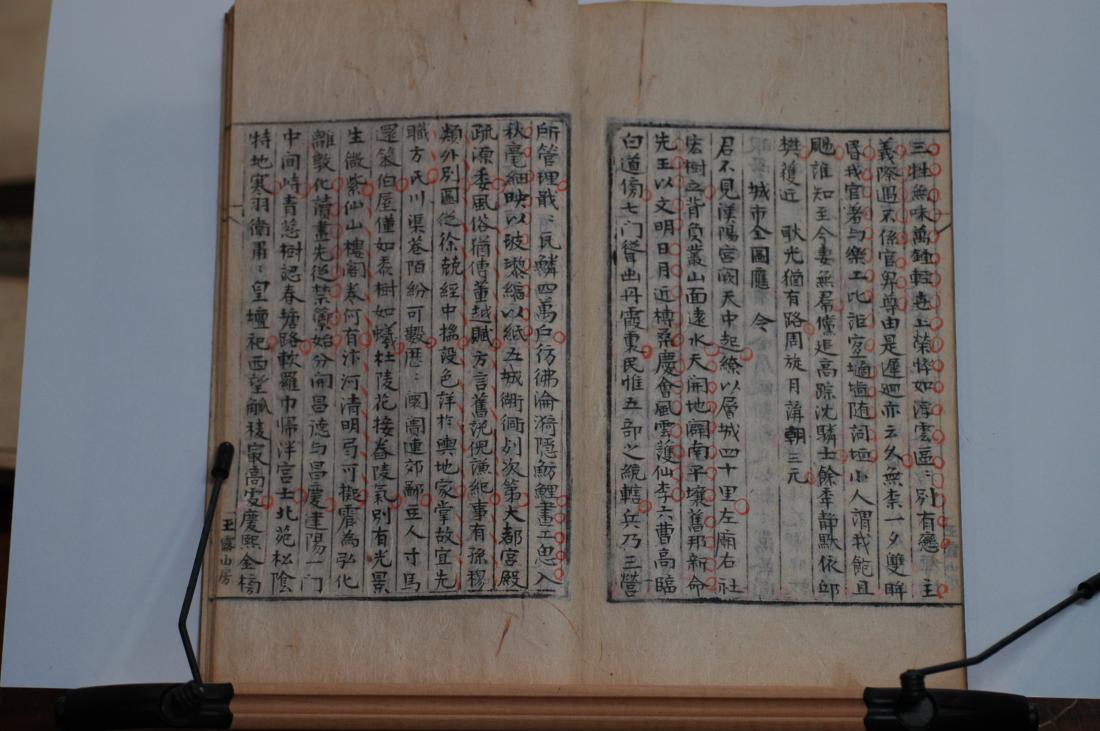 三牲無味萬鍾輕逸士榮悴如浮雲區〻別有應主
義際遇不係官界尊由是遲廻亦云久無柰一夕雙眸
昏我官署与樂工叱洰室壖墻随詞垣小人謂我能且
颺誰知至今妻無帬儻追高踪沈驎士餘秊静默依邱
樊復近耿光猶有路周旋月藹朝三元
城市全圖應令
君不見漢陽宮闕天中起繚以層城四十里左廟右社
宏樹之背負叢山面遠水天開地闢南平壤舊邦新命
先王以文明日月近榑桑慶會風雲護仙李六曹高臨
白道傍七門聳出丹霞裏民惟五部之統轄兵乃三營
所管理戢〻瓦鱗四萬戶仿彿淪漪隱魴鯉畫工忽入
秋毫細映以玻瓈縮以紙五城衕衕列次第大都宮殿
疏源委風俗猶傳董越賦方言舊説倪謙紀事有孫穆
類外別圖從徐兢經中摛設色詳扵輿地家掌故宜先
職方氏川渠巷陌紛可數歷〻闤闠連郊鄙豆人寸馬
邐筞伯屋僅如黍樹如蟻杜陵花接春陵氣別有光景
生微紫仙山樓閣养何有汴河清明烏可擬霱為弘化
離敦化讀畫先從禁籞始分開昌德与昌慶建陽一門
中間峙青葱樹認春塘路軟羅巾帰泮宮士北苑松陰
特地寒羽衛肅〻皇壇祀西望觚稜㝡高處慶熙金榜
玉露山房